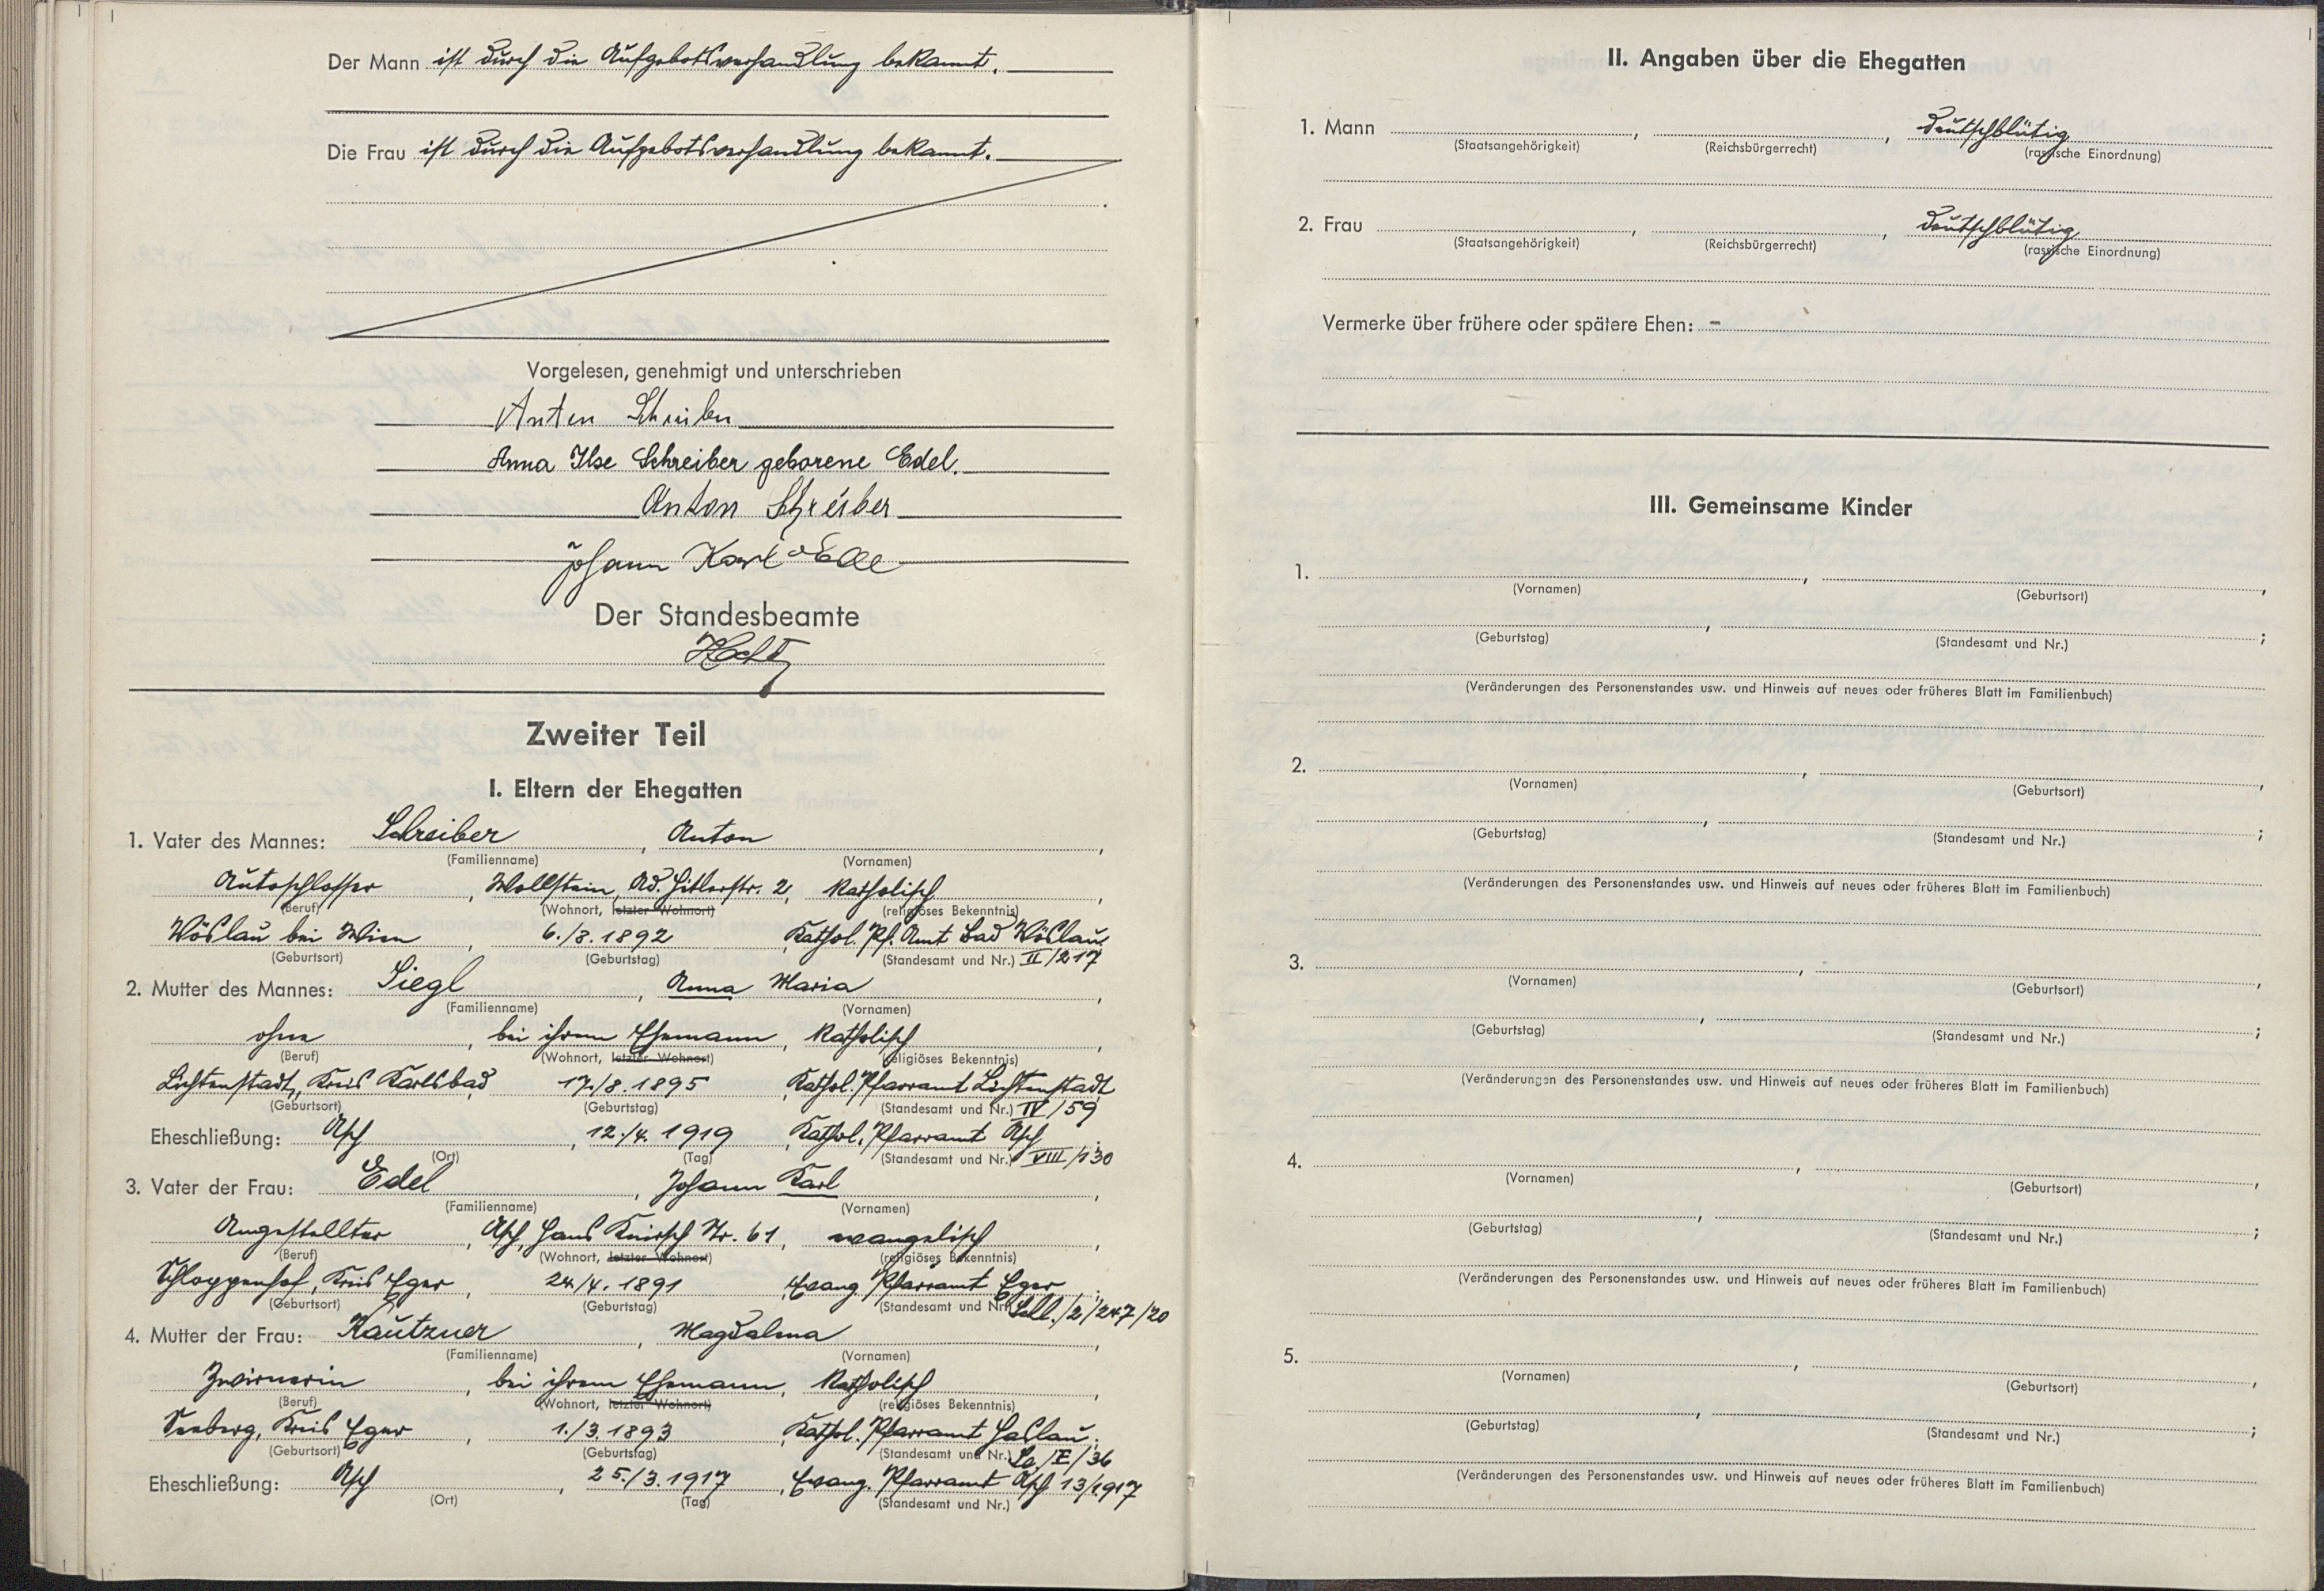 Der Mann ist durch die Aufgebotsverhandlung bekannt.
Die Frau ist durch die Aufgebotsverhandlung bekannt.
Vorgelesen, genehmigt und unterschrieben
Anton Schreiber
Anna Ilse Schreiber geborene Edel.
Anton Schreiber
Johann Karl Edel
Der Standesbeamte
Zweiter Teil
I. Eltern der Ehegatten
1. Vater des Mannes: Schreiber, Anton,
(Familienname) (Vornamen)
Autoschlosser, Wollstein, Ad. Hitlerstr. 2, katholisch,
(Beruf) (Wohnort, letzter Wohnort) (religiöses Bekenntnis)
Vöslau bei Wien, 6./8. 1892, Kathol. Pf. Amt Bad Vöslau
(Geburtsort) (Geburtstag) (Standesamt und Nr.) II/217
2. Mutter des Mannes: Siegl, Anna Maria,
(Familienname) (Vornamen)
ohne, bei ihrem Ehemann, katholisch,
(Beruf) (Wohnort, letzter Wohnort) (religiöses Bekenntnis)
Lichtenstadt, Kreis Karlsbad, 17./8. 1895, Kathol. Pfarramt Lichtenstadt
(Geburtsort) (Geburtstag) (Standesamt und Nr.) IV/59
Eheschließung: Asch, 12./4. 1919, Kathol. Pfarramt Asch
(Ort) (Tag) (Standesamt und Nr.) VIII/130
3. Vater der Frau: Edel, Johann Karl,
(Familienname) (Vornamen)
Angestellter, Asch, Hans Knirsch Nr. 61, evangelisch,
(Beruf) (Wohnort, letzter Wohnort) (religiöses Bekenntnis)
Schloppenhof, Kreis Eger, 24./4. 1891, Evang. Pfarramt Eger;
(Geburtsort) (Geburtstag) (Standesamt und Nr.) /2/247/20
4. Mutter der Frau: Kautzner, Magdalena,
(Familienname) (Vornamen)
Zwirnerin, bei ihrem Ehemann, katholisch,
(Beruf) (Wohnort, letzter Wohnort) (religiöses Bekenntnis)
Seeberg, Kreis Eger, 1./3. 1893, Kathol. Pfarramt Haslau;
(Geburtsort) (Geburtstag) (Standesamt und Nr.) /36
Eheschließung: Asch, 25./3. 1917, Evang. Pfarramt Asch 13/1917
(Ort) (Tag) (Standesamt und Nr.)
II. Angaben über die Ehegatten
1. Mann , , deutschblütig
(Staatsangehörigkeit) (Reichsbürgerrecht) (rassische Einordnung)
2. Frau , , deutschblütig
(Staatsangehörigkeit) (Reichsbürgerrecht) (rassische Einordnung)
Vermerke über frühere oder spätere Ehen: -
III. Gemeinsame Kinder
1. , ,
(Vornamen) (Geburtsort)
, ;
(Geburtstag) (Standesamt und Nr.)
(Veränderungen des Personenstandes usw. und Hinweis auf neues oder früheres Blatt im Familienbuch)
2. , ,
(Vornamen) (Geburtsort)
, ;
(Geburtstag) (Standesamt und Nr.)
(Veränderungen des Personenstandes usw. und Hinweis auf neues oder früheres Blatt im Familienbuch)
3. , ,
(Vornamen) (Geburtsort)
, ;
(Geburtstag) (Standesamt und Nr.)
(Veränderungen des Personenstandes usw. und Hinweis auf neues oder früheres Blatt im Familienbuch)
4. , ,
(Vornamen) (Geburtsort)
, ;
(Geburtstag) (Standesamt und Nr.)
(Veränderungen des Personenstandes usw. und Hinweis auf neues oder früheres Blatt im Familienbuch)
5. , ,
(Vornamen) (Geburtsort)
, ;
(Geburtstag) (Standesamt und Nr.)
(Veränderungen des Personenstandes usw. und Hinweis auf neues oder früheres Blatt im Familienbuch)